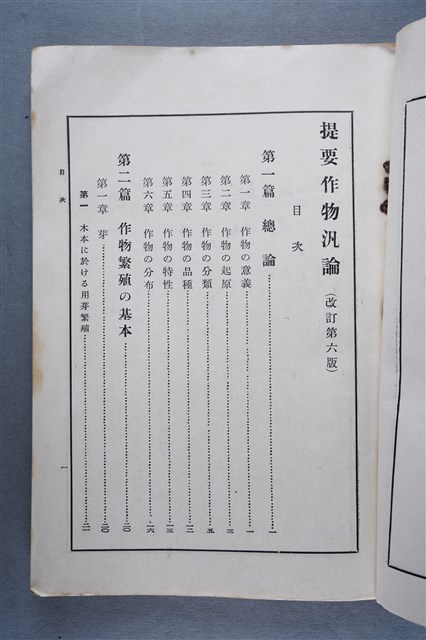 提要作物汎論（改訂第六版）
目次
第一篇 總論……一
第一章 作物の意義……一
第二章 作物の起原……三
第三章 作物の分類……五
第四章 作物の品種……一二
第五章 作物の特性……一三
第六章 作物の分布……一六
第二篇 作物繁殖の基本……二〇
第一章 芽……二〇
第一 木本に於ける用芽繁殖……二一
目次
一